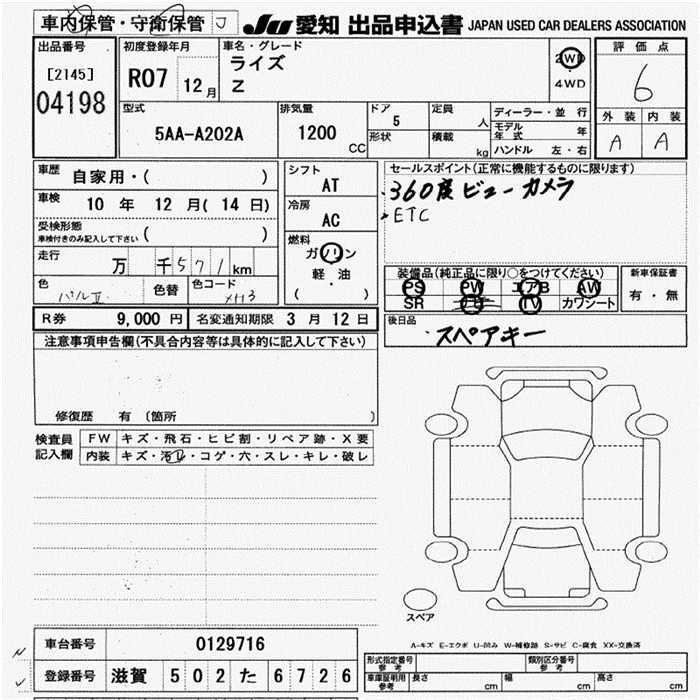 車内保管・守衛保管
JU 愛知 出品申込書 JAPAN USED CAR DEALERS ASSOCIATION
出品番号
[2145]
04198
初度登録年月
R07 12月
車名・グレード
ライズ
Z
2WD
4WD
評価点
6
外装 内装
A A
型式
5AA-A202A
排気量
1200 CC
ドア
5
形状
定員 人
積載 kg
ディーラー・並行
モデル年式 年
ハンドル 左・右
車歴
自家用・( )
車検
10 年 12 月( 14 日)
受検形態
車検付きのみ記入して下さい ( )
走行
万 千571km
色
色替
色コード
シフト
AT
冷房
AC
燃料
ガソリン
軽・油
( )
セールスポイント(正常に機能するものに限ります)
・360度ビューカメラ
・ETC
装備品(純正品に限り○をつけてください)
PS PW エアB AW
SR ナビ TV カワシート
新車保証書
有・無
R券 9,000 円
名変通知期限 3 月 12 日
後日品
・スペアキー
注意事項申告欄(不具合内容等は具体的に記入して下さい)
修復歴 有 〔箇所 〕
検査員記入欄
FW キズ・飛石・ヒビ割・リペア跡・X要
内装 キズ・汚レ・コゲ・穴・スレ・キレ・破レ
スペア
A-キズ E-エクボ U-凹み W-補修跡 S-サビ C-腐食 XX-交換済
車台番号 0129716
登録番号 滋賀 502た6726
形式指定番号 参考
類別区分番号 参考
車庫証明用 参考
長さ cm 幅 cm 高さ cm